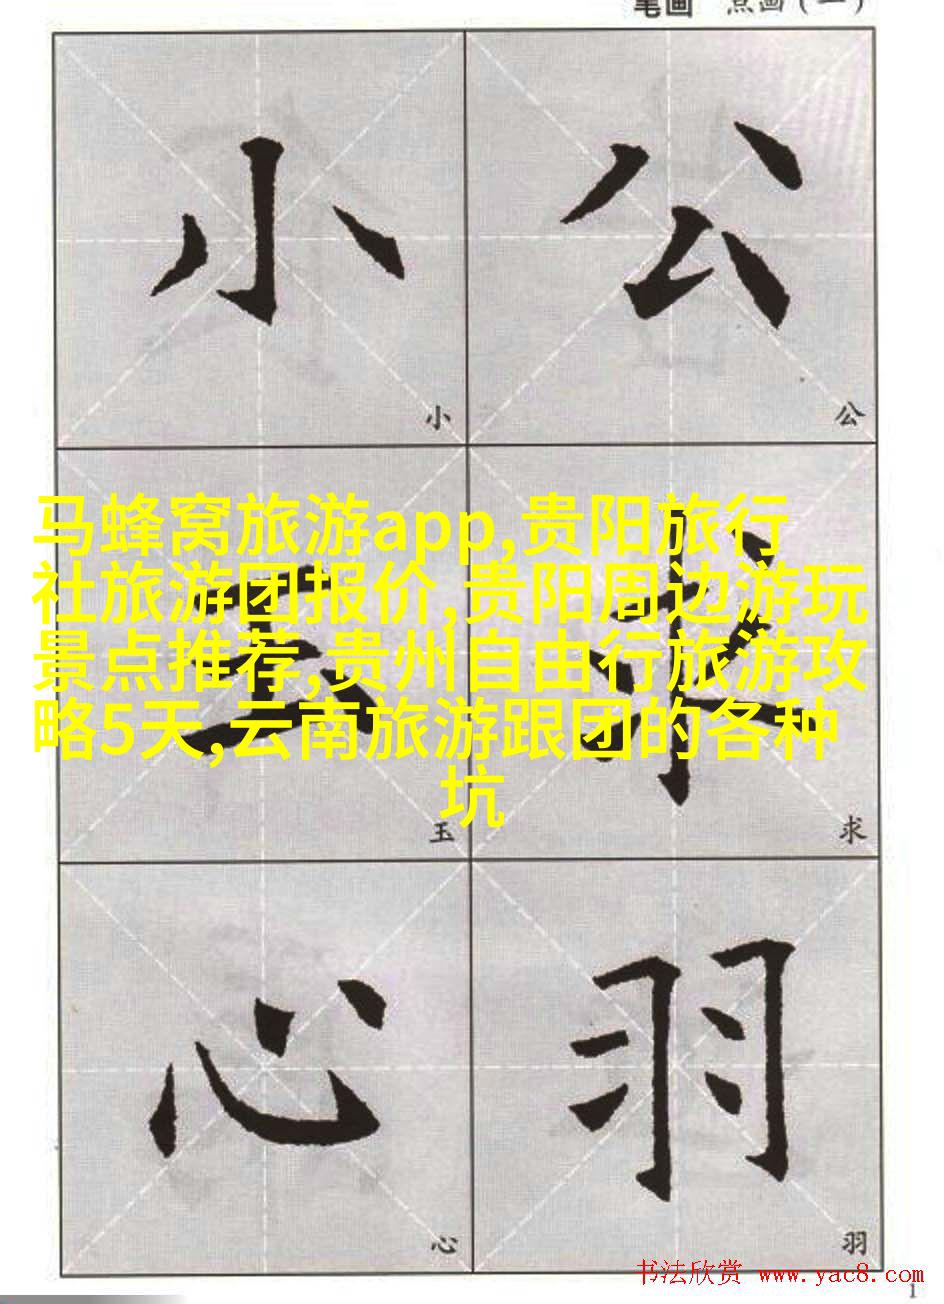 笔画 点画(一)
小 公
小 公
马蜂窝旅游app,贵阳旅行
社旅游团报价,贵阳周边游玩
景点推荐,贵州自由行旅游攻
略5天,云南旅游跟团的各种
坑
玉 求
玉 求
心 羽
心 羽
书法欣赏 www.yac8.com
1